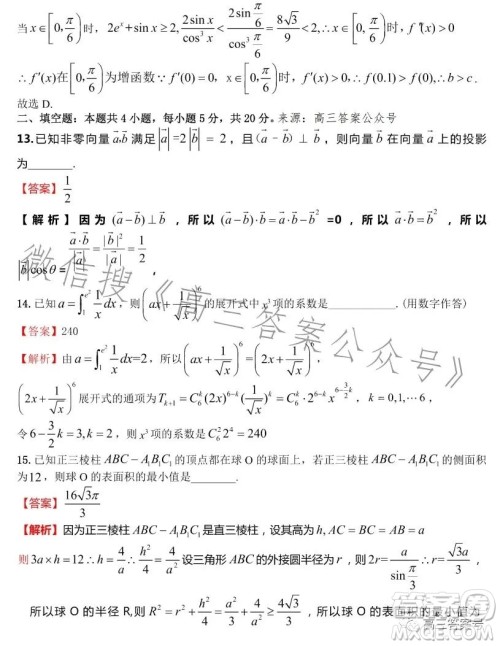 当 x∈[0, π/6) 时, 2eˣ+sin x≥2, 2sin x/cos³x < 2sin(π/6)/cos³(π/6) = 8√3/9 < 2, ∴x∈[0, π/6)时, f″(x)>0
∴f′(x)在[0, π/6)为增函数∵f′(0)=0, x∈[0, π/6)时, f′(x)>0, ∴f(0.1)>f(0), ∴b>c.
故选 D.
二、填空题:本题共 4 小题,每小题 5 分,共 20 分。来源:高三答案公众号
13.已知非零向量 a⃗,b⃗ 满足 |a⃗|=2|b⃗|=2,且(a⃗−b⃗)⊥b⃗,则向量 b⃗ 在向量 a⃗ 上的投影
为_______.
【答案】1/2
【解析】因为 (a⃗−b⃗)⊥b⃗,所以 (a⃗−b⃗)·b⃗=a⃗·b⃗−b⃗²=0,所以 a⃗·b⃗=b⃗²,所以
|b⃗|cosθ = a⃗·b⃗/|a⃗| = |b⃗|²/|a⃗| = 1/2,
14.已知 a=∫₁^(e²) 1/x dx,则 (ax+1/√x)⁶ 的展开式中 x³ 项的系数是_______.(用数字作答)
【答案】240
【解析】由 a=∫₁^(e²) 1/x dx=2,所以 (ax+1/√x)⁶=(2x+1/√x)⁶,
(2x+1/√x)⁶ 展开式的通项为 Tₖ₊₁=C₆ᵏ(2x)⁶⁻ᵏ(1/√x)ᵏ=C₆ᵏ·2⁶⁻ᵏx^(6−(3/2)k),k=0,1,···6,
令 6−(3/2)k=3,k=2,则 x³ 项的系数是 C₆²2⁴=240
15.已知正三棱柱 ABC−A₁B₁C₁ 的顶点都在球 O 的球面上,若正三棱柱 ABC−A₁B₁C₁ 的侧面积
为12,则球 O 的表面积的最小值是_______.
【答案】16√3π/3
【解析】因为正三棱柱 ABC−A₁B₁C₁ 是直三棱柱,设其高为 h, AC=AB=BC=a
则 3a×h=12∴h=4/a∴h²/4=4/a² 设三角形 ABC 的外接圆半径为 r,则 2r=a/sin(π/3),∴r=√3a/3,
所以球 O 的半径 R,则 R²=r²+h²/4=a²/3+4/a²≥4√3/3,所以球 O 的表面积的最小值为
微信搜《高三答案公众号》
高三答案号